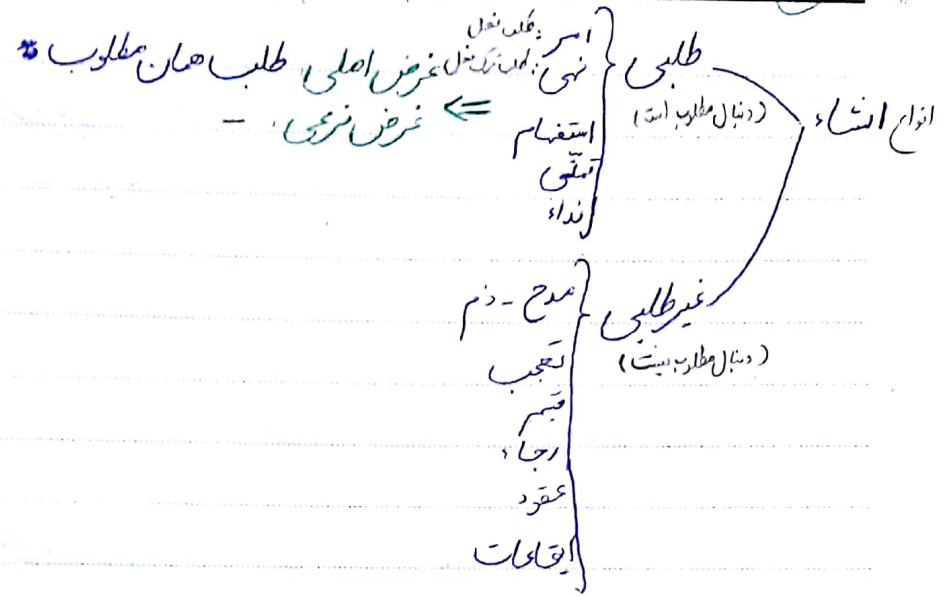 انواع انشاء
طلبی
(دنبال مطلوب است)
امر: طلب فعل
نهی: طلب ترک فعل
استفهام
تمنّی
نداء
⇐ غرض اصلی: طلب همان مطلوب *
غرض فرعی: -
غیر طلبی
(دنبال مطلوب نیست)
مدح - ذم
تعجب
قسم
رجاء
عقود
ایقاعات